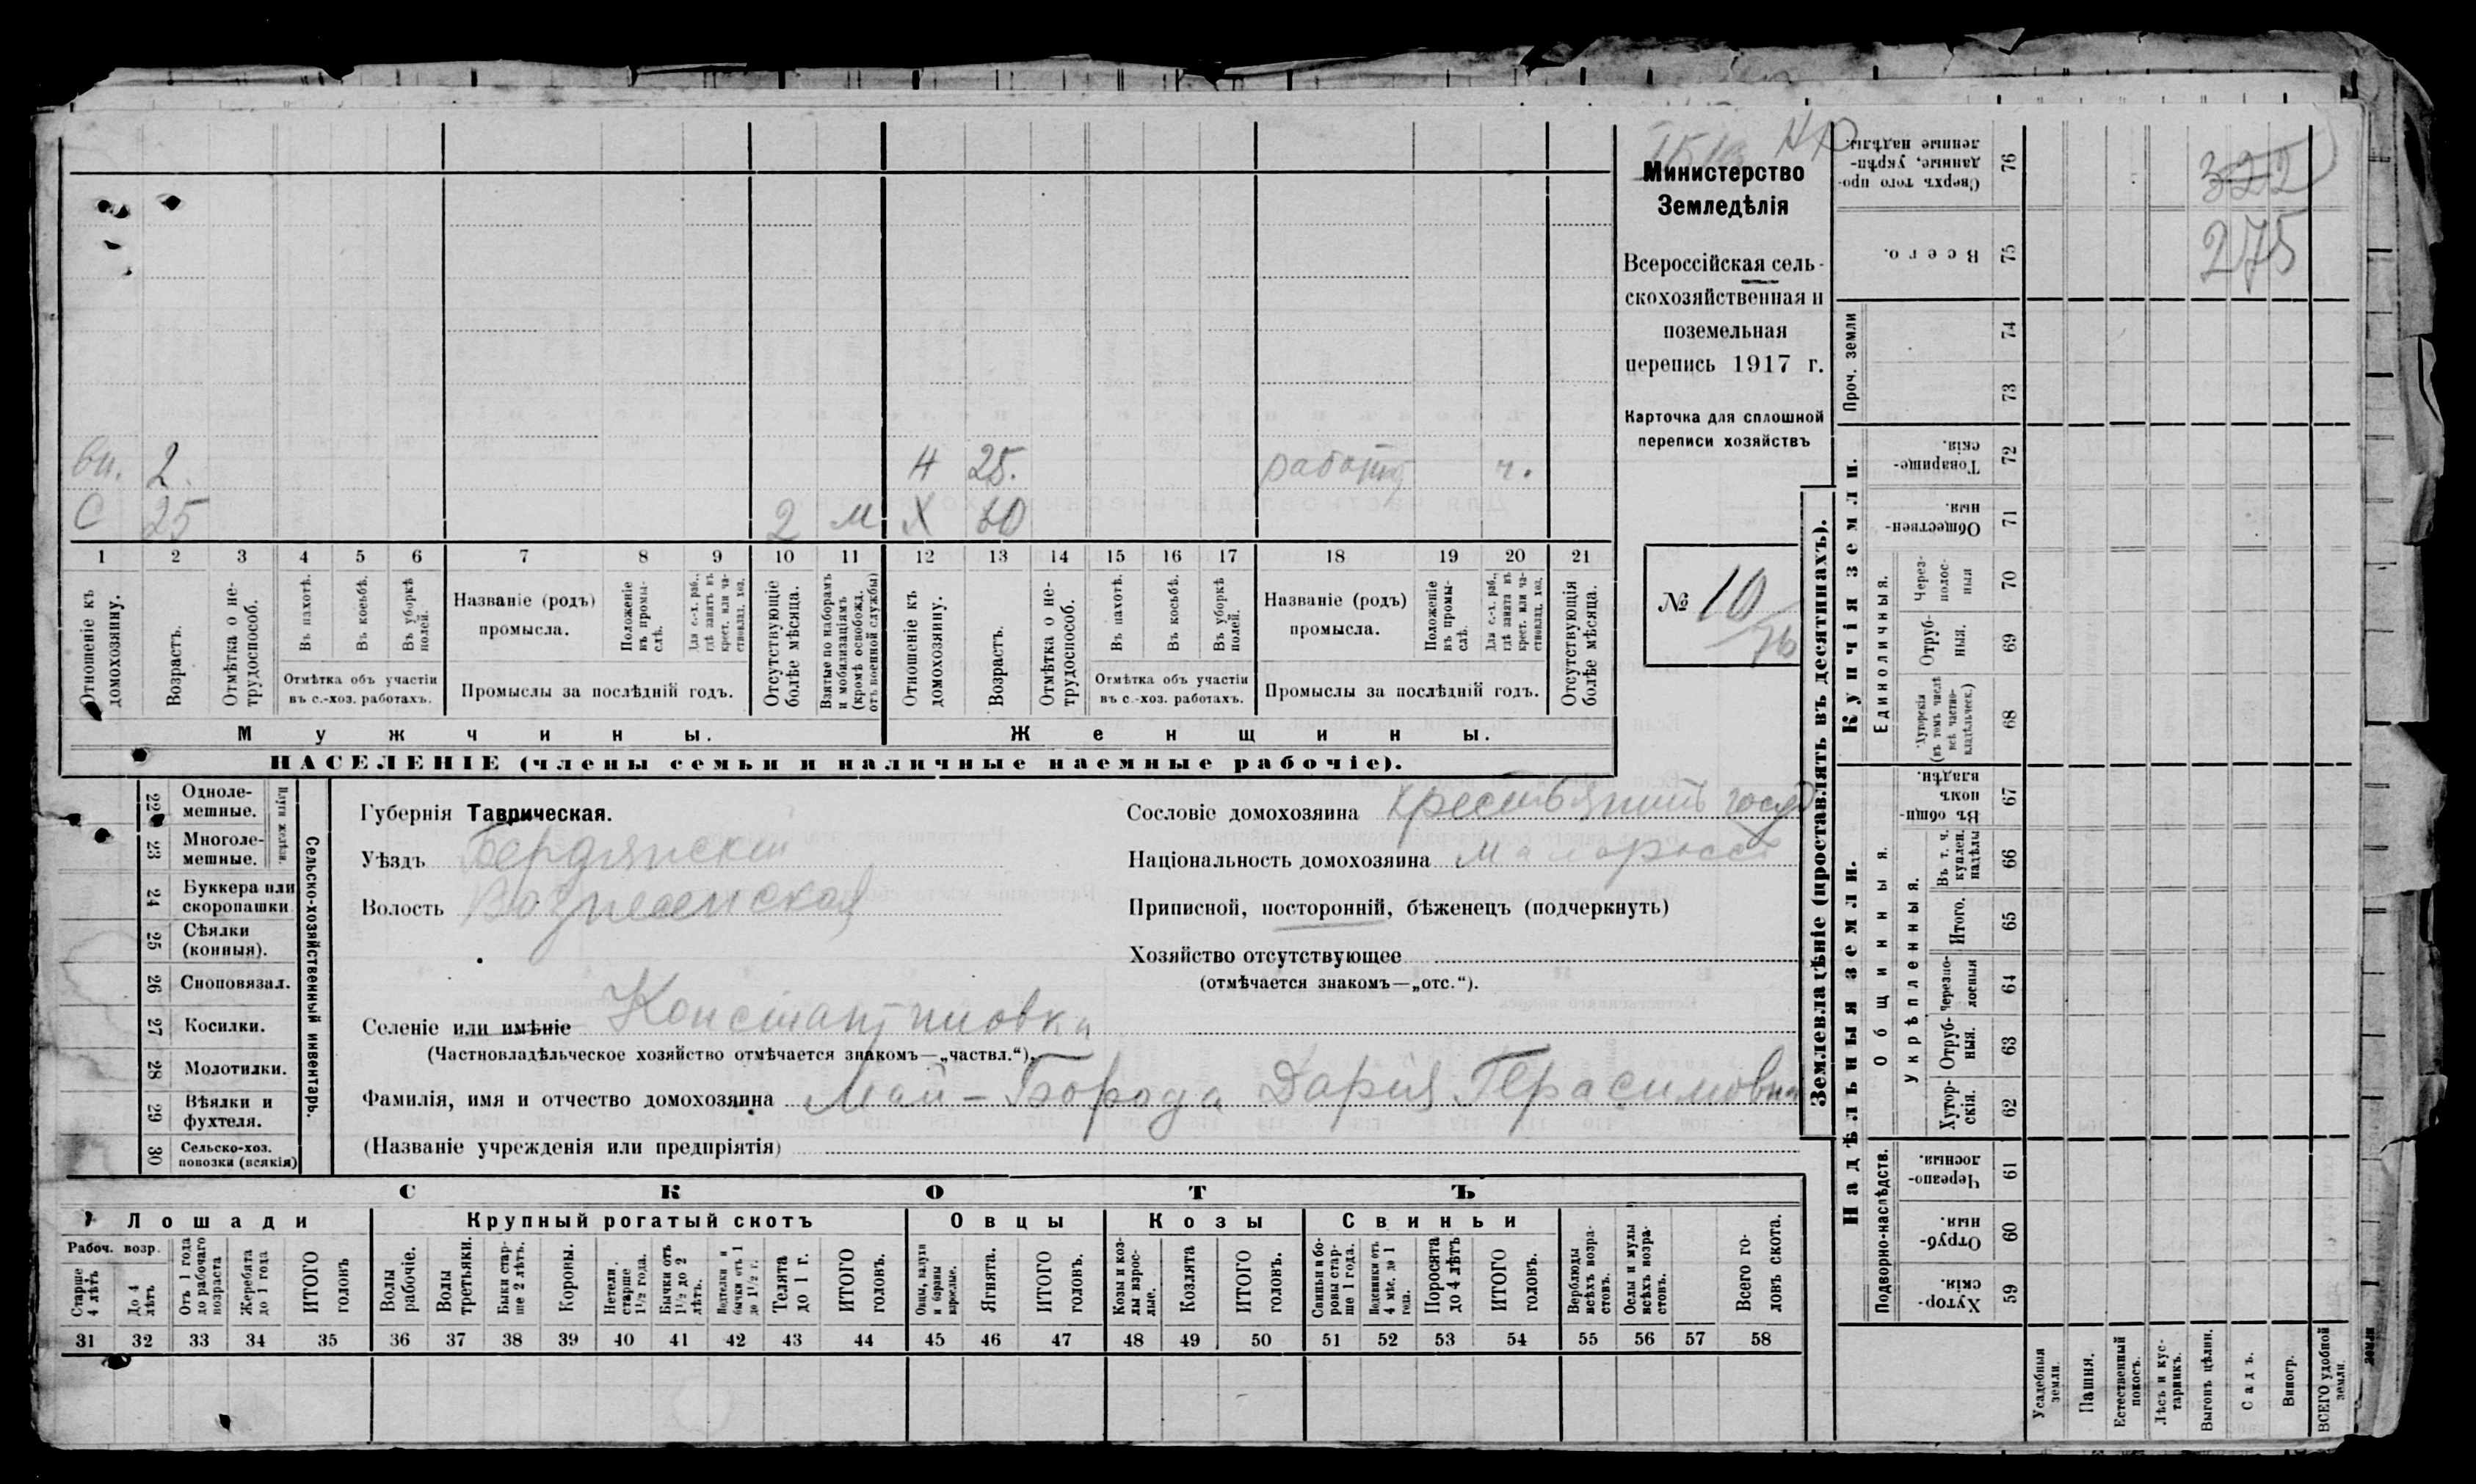 Министерство
Земледѣлія
Всероссійская сель-
скохозяйственная и
поземельная
перепись 1917 г.
Карточка для сплошной
переписи хозяйствъ
№ 10
вн. 2 Н 25. ч.
С 25 2 м Х 60
1 2 3 4 5 6 7 8 9 10 11 12 13 14 15 16 17 18 19 20 21
Отношеніе къ домохозяину.
Возрастъ.
Отмѣтка о не-трудоспособ.
Въ пахотѣ.
Въ косьбѣ.
Въ уборкѣ полей.
Отмѣтка объ участіи
въ с.-хоз. работахъ.
Названіе (родъ)
промысла.
Положеніе въ промы-слѣ.
Для с.-х. раб., гдѣ занятъ въ крест. или ча-стновлад. хоз.
Промыслы за послѣдній годъ.
Отсутствующіе болѣе мѣсяца.
Взятые по наборамъ и мобилизаціямъ (кромѣ освобожд. отъ военной службы)
Отношеніе къ домохозяину.
Возрастъ.
Отмѣтка о не-трудоспособ.
Въ пахотѣ.
Въ косьбѣ.
Въ уборкѣ полей.
Отмѣтка объ участіи
въ с.-хоз. работахъ.
Названіе (родъ)
промысла.
Положеніе въ промы-слѣ.
Для с.-х. раб., гдѣ занята въ крест. или ча-стновлад. хоз.
Промыслы за послѣдній годъ.
Отсутствующія болѣе мѣсяца.
Мужчины. Женщины.
НАСЕЛЕНІЕ (члены семьи и наличные наемные рабочіе).
Сельско-хозяйственный инвентарь.
Плуги желѣзн.
22 Одноле-мешные.
23 Многоле-мешные.
24 Буккера или скоропашки
25 Сѣялки (конныя).
26 Сноповязал.
27 Косилки.
28 Молотилки.
29 Вѣялки и фухтеля.
30 Сельско-хоз. повозки (всякія)
Губернія Таврическая.
Уѣздъ Бердянскій
Волость Вознесенская
Селеніе или имѣніе Константиновка
(Частновладѣльческое хозяйство отмѣчается знакомъ—„частвл.“).
Фамилія, имя и отчество домохозяина Май-Борода Дарія Герасимовна
(Названіе учрежденія или предпріятія)
Сословіе домохозяина крестьянинъ госуд
Національность домохозяина малороссъ
Приписной, посторонній, бѣженецъ (подчеркнуть)
Хозяйство отсутствующее
(отмѣчается знакомъ—„отс.“).
СКОТЪ
Лошади Крупный рогатый скотъ Овцы Козы Свиньи
Рабоч. возр.
Старше 4 лѣтъ
До 4 лѣтъ
Отъ 1 года до рабочаго возраста
Жеребята до 1 года
ИТОГО головъ
Волы рабочіе.
Волы третьяки.
Быки стар-ше 2 лѣтъ.
Коровы.
Нетели старше 1½ года.
Бычки отъ 1½ до 2 лѣтъ.
Подтелки и бычки отъ 1 до 1½ г.
Телята до 1 г.
ИТОГО головъ.
Овцы, валухи и бараны взрослые.
Ягнята.
ИТОГО головъ.
Козы и коз-лы взрос-лые.
Козлята
ИТОГО головъ.
Свиньи и бо-ровы стар-ше 1 года.
Подсвинки отъ 4 мѣс. до 1 года.
Поросята до 4 лѣтъ
ИТОГО головъ.
Верблюды всѣхъ возра-стовъ.
Ослы и мулы всѣхъ возра-стовъ.
Всего го-ловъ скота.
31 32 33 34 35 36 37 38 39 40 41 42 43 44 45 46 47 48 49 50 51 52 53 54 55 56 57 58
Землевладѣніе (проставлять въ десятинахъ).
Сверхъ того про-данные, укрѣп-ленные надѣлы. 76 322
Всего. 75 275
Проч. земли 74
73
Купчія земли.
Товарище-скія. 72
Обществен-ныя. 71
Единоличныя.
Через-полос-ныя 70
Отруб-ныя. 69
Хуторскія (въ томъ числѣ всѣ частно-владѣльческ.) 68
Надѣльныя земли.
Общинныя.
Въ общи-номъ владѣн. 67
Укрѣпленныя.
Въ т. ч. куплен. надѣлы 66
Итого. 65
Черезпо-лосныя 64
Отруб-ныя. 63
Хутор-скія. 62
Подворно-наслѣдств.
Черезпо-лосныя. 61
Отруб-ныя. 60
Хутор-скія. 59
Усадебныя земли.
Пашня.
Естественный покосъ.
Лѣсъ и кус-тарникъ.
Выгонъ цѣлин.
Садъ.
Виногр.
ВСЕГО удобной земли.